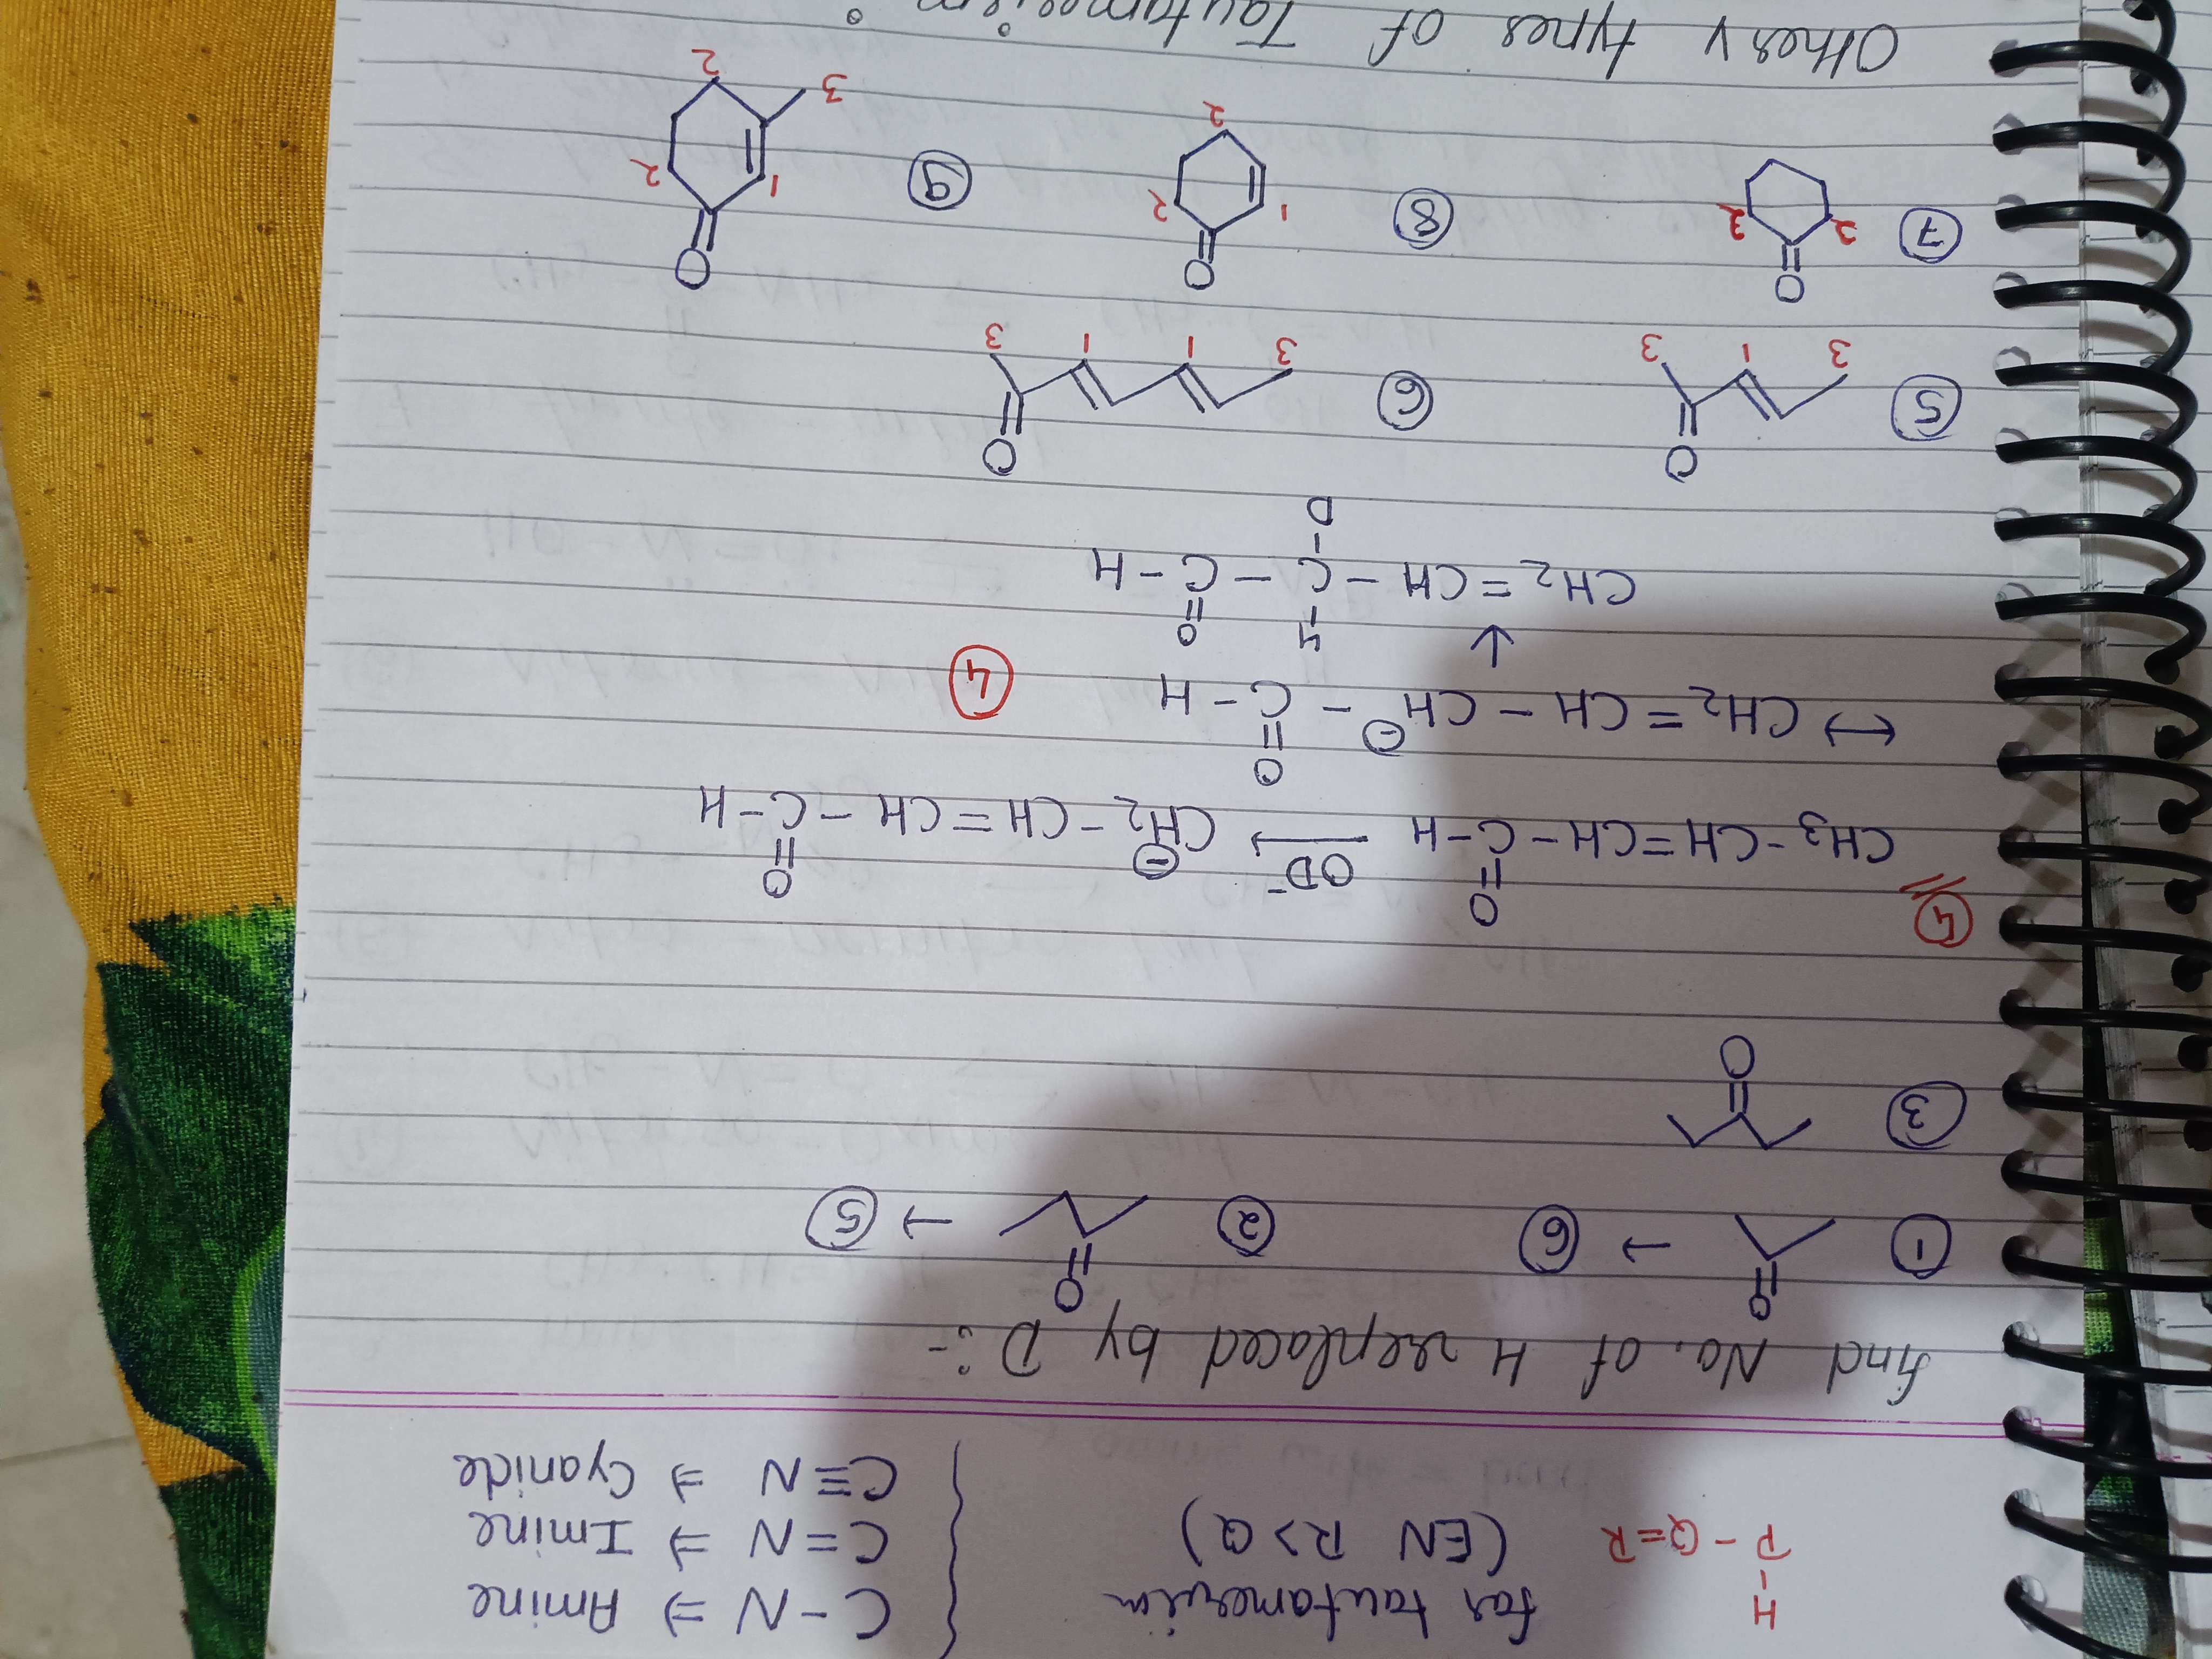 H
P - Q = R
for tautomerism
(EN R > Q)
C - N ⇒ Amine
C = N ⇒ Imine
C ≡ N ⇒ Cyanide
find No. of H replaced by D :-
① O → ⑥ ② O → ⑤
③ O
④ CH3 - CH = CH - C - H OD⁻ → CH2 - CH = CH - C - H
O ⊖ O
↔ CH2 = CH - CH - C - H ④
⊖ O
↓ H O
CH2 = CH - C - C - H
D
⑤ O 3 1 3 ⑥ O 3 1 1 3
⑦ O 2 2 ⑧ O 1 2 2 ⑨ O 1 2 2 3
Other types of Tautomerism :